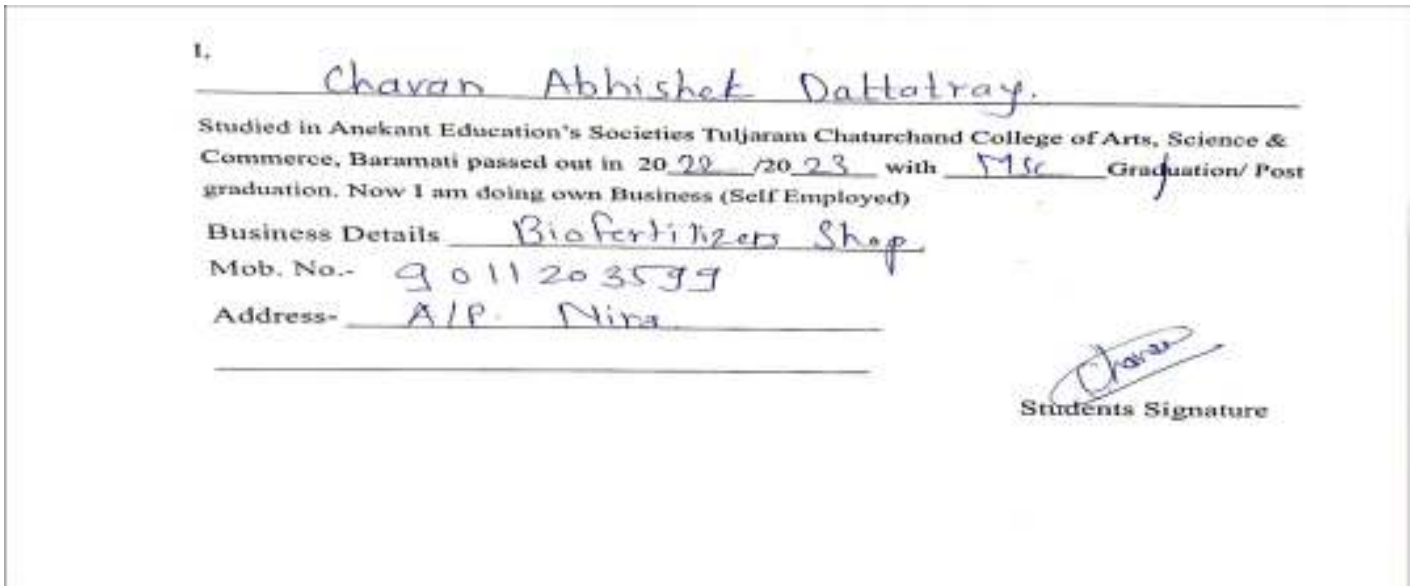 I,
Chavan Abhishek Dattatray.
Studied in Anekant Education's Societies Tuljaram Chaturchand College of Arts, Science &
Commerce, Baramati passed out in 2022 /2023 with MSc Graduation/ Post
graduation. Now I am doing own Business (Self Employed)
Business Details Biofertilizers Shop
Mob. No.- 9011203599
Address- A/P. Nira
Chavan
Students Signature